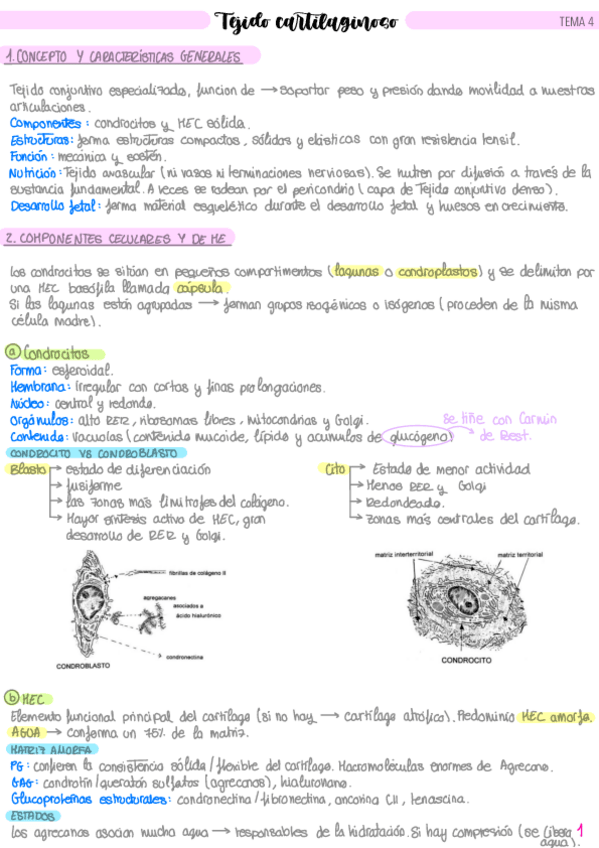 Tejido cartilaginoso
TEMA 4
1. CONCEPTO Y CARACTERÍSTICAS GENERALES
Tejido conjuntivo especializado, funcion de → soportar peso y presión dando movilidad a nuestras
articulaciones.
Componentes: condrocitos y MEC sólida.
Estructuras: forma estructuras compactas, sólidas y elásticas con gran resistencia tensil.
Función: mecánica y sostén.
Nutrición: Tejido avascular (ni vasos ni terminaciones nerviosas). Se nutren por difusión a través de la
sustancia fundamental. A veces se rodean por el pericondrio (capa de Tejido conjuntivo denso).
Desarrollo fetal: forma material esquelético durante el desarrollo fetal y huesos en crecimiento.
2. COMPONENTES CELULARES Y DE ME
Los condrocitos se sitúan en pequeños compartimentos (lagunas o condroplastos) y se delimitan por
una MEC basófila llamada cápsula.
Si las lagunas están agrupadas → forman grupos isogénicos o isógenos (proceden de la misma
célula madre).
a Condrocitos
Forma: esferoidal.
Membrana: irregular con cortas y finas prolongaciones.
Núcleo: central y redondo.
Orgánulos: alto RER, ribosomas libres, mitocondrias y Golgi.
Contenido: vacuolas (contenido mucoide, lípido y acumulos de glucógeno)
Se tiñe con Carmín
de Best.
CONDROCITO VS CONDROBLASTO
Blasto → estado de diferenciación
→ fusiforme
→ las zonas más limítrofes del colágeno.
→ Mayor síntesis activo de MEC, gran
desarrollo de RER y Golgi.
Cito → Estado de menor actividad
→ Menos RER y Golgi
→ Redondeado.
→ Zonas más centrales del cartílago.
fibrillas de colágeno II
agregacanes
asociados a
ácido hialurónico
condronectina
CONDROBLASTO
matriz interterritorial
matriz territorial
CONDROCITO
b MEC
Elemento funcional principal del cartílago (si no hay → cartílago atrófico). Predominio MEC amorfa.
AGUA → conforma un 75% de la matriz.
MATRIZ AMORFA
PG: confieren la consistencia sólida/flexible del cartílago. Macromoléculas enormes de Agrecano.
GAG: condrotín/queratón sulfatos (agrecanos), hialuronano.
Glucoproteínas estructurales: condronectina/fibronectina, ancorina CII, tenascina.
ESTADOS
Los agrecanos asocian mucha agua → responsables de la hidratación. Si hay compresión (se libera
agua).
1